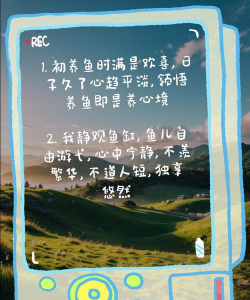 REC
1. 初养鱼时满是欢喜, 日
子久了心趋平淡, 领悟
养鱼即是养心境
2. 我静观鱼缸, 鱼儿自
由游弋, 心中宁静, 不羡
繁华, 不道人短, 独享
悠然